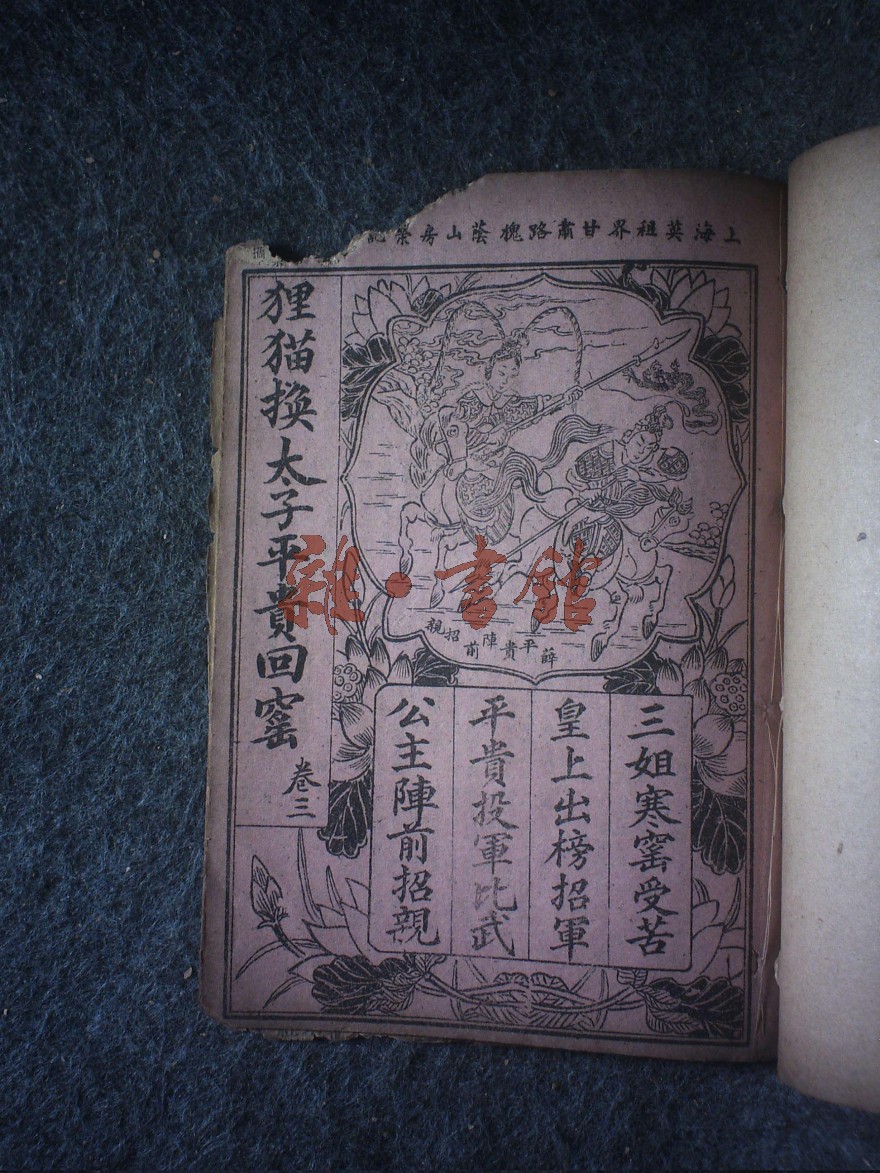 上海英租界甘肅路槐蔭山房榮記
狸猫换太子平貴回窰
卷三
薛平貴陣前招親
三姐寒窰受苦
皇上出榜招軍
平貴投軍比武
公主陣前招親
雜·書館